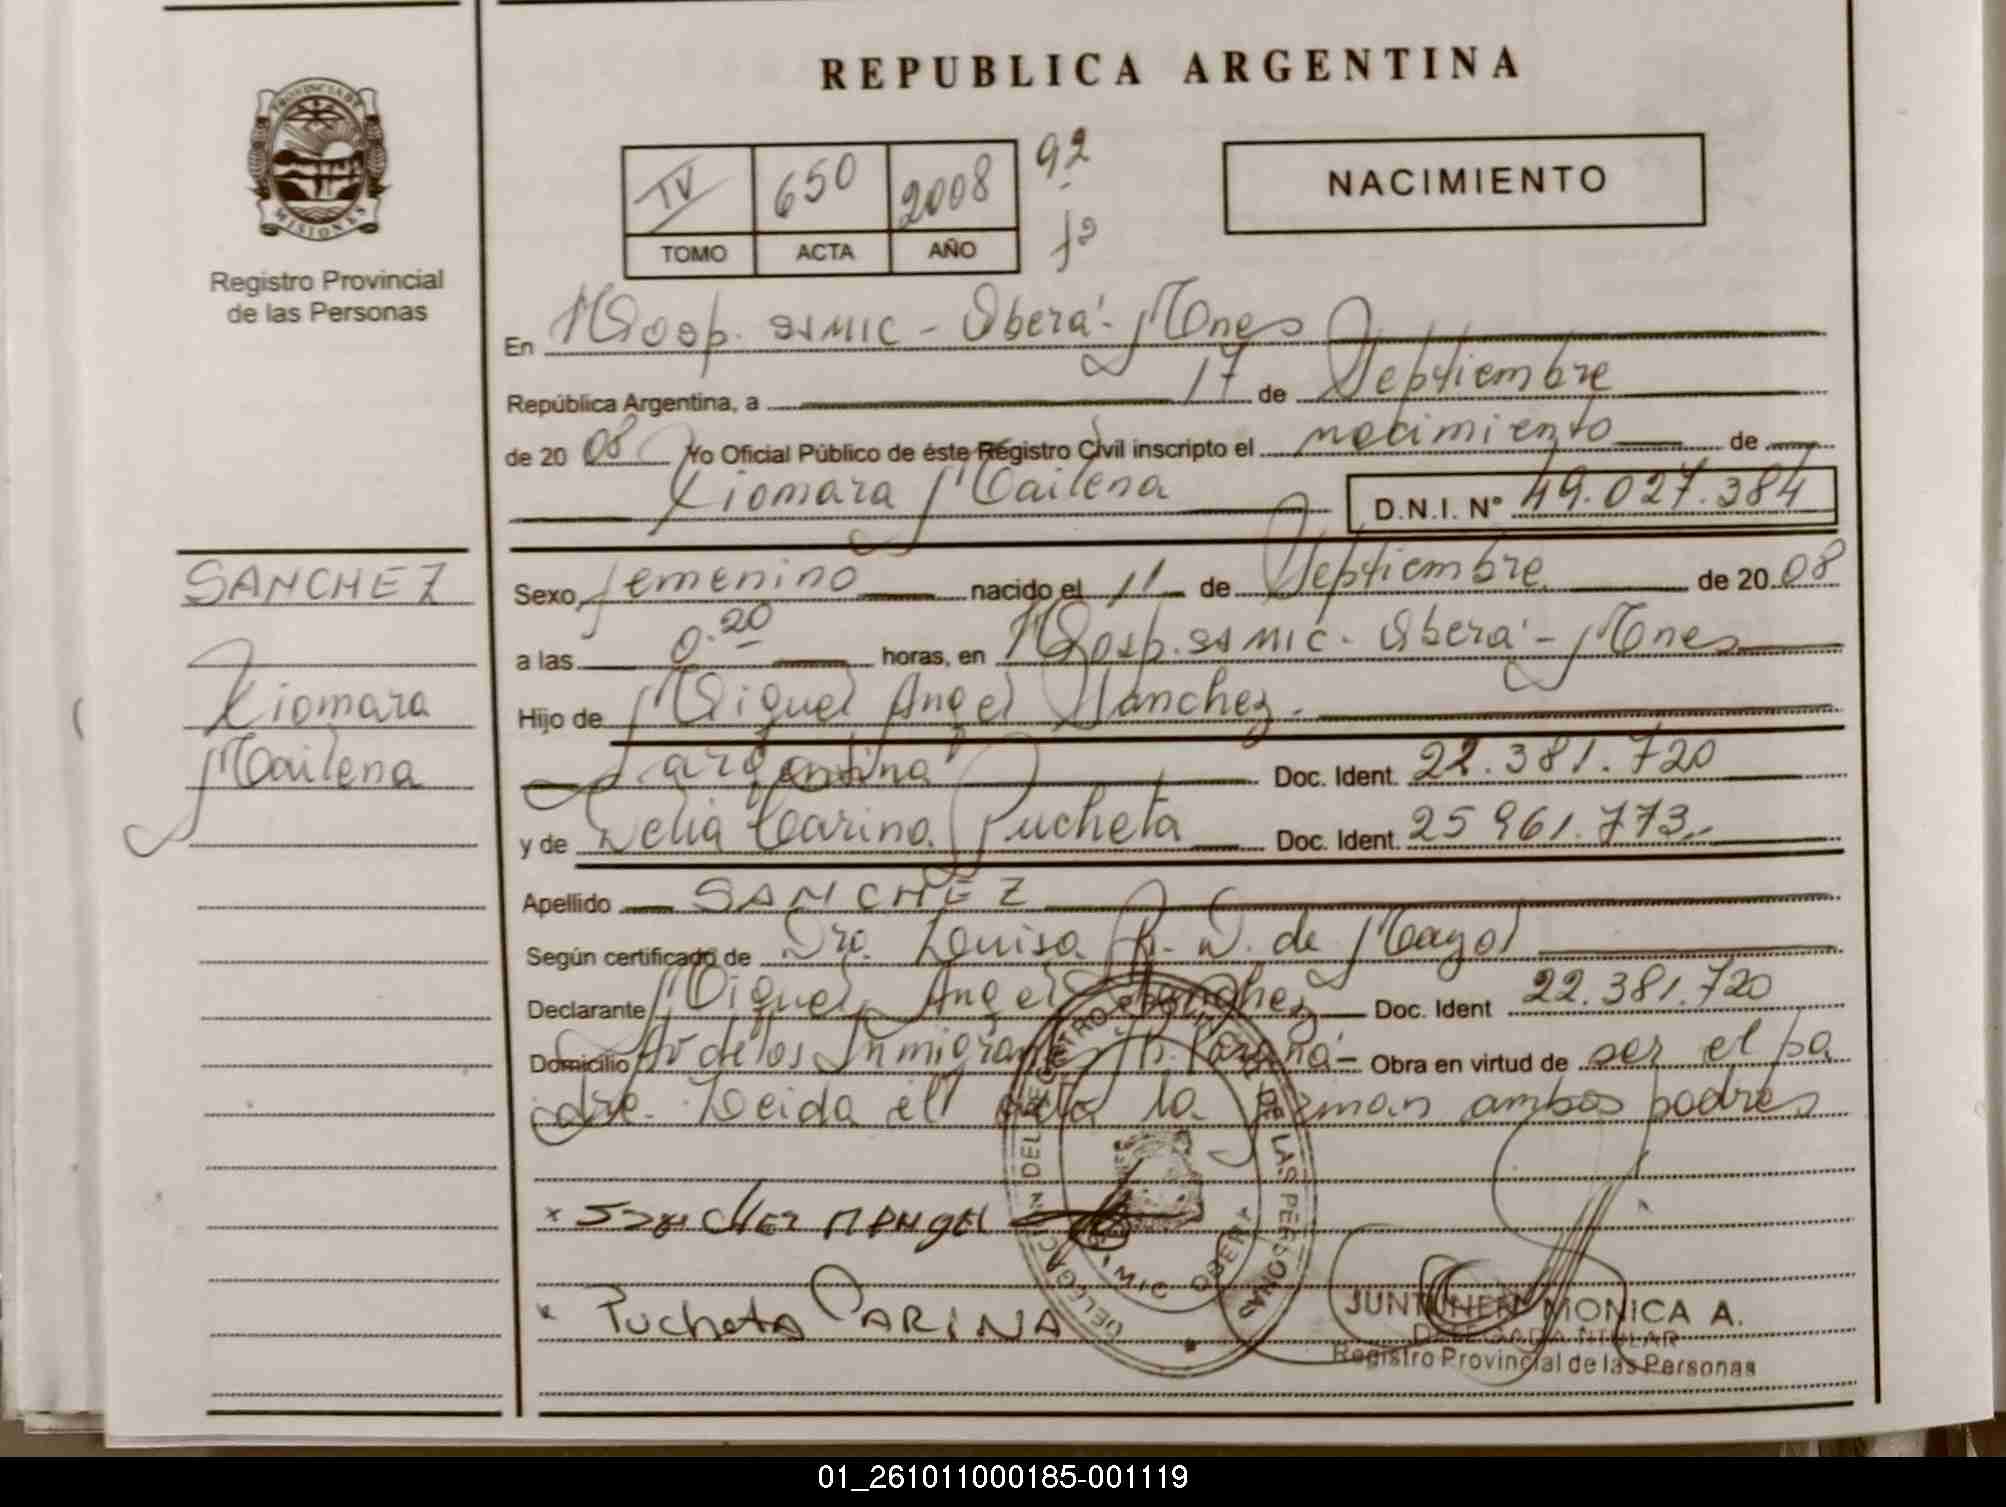 REPUBLICA ARGENTINA
PROVINCIA DE
MISIONES
Registro Provincial
de las Personas
IV 650 2008 92
TOMO ACTA AÑO fº
NACIMIENTO
En Hosp. SAMIC - Oberá - Mnes
República Argentina, a 17 de Septiembre
de 20 08 Yo Oficial Público de éste Registro Civil inscripto el nacimiento de
Xiomara Mailena D.N.I. Nº 49.027.384
SANCHEZ
Xiomara
Mailena
Sexo femenino nacido el 11 de Septiembre de 20 08
a las 0.20 horas, en Hosp. SAMIC - Oberá - Mnes
Hijo de Miguel Angel Sanchez.
argentina Doc. Ident. 22.381.720
y de Delia Carina Pucheta Doc. Ident. 25 961.773.-
Apellido SANCHEZ
Según certificado de Dra. Luisa R. D. de Mayol
Declarante Miguel Angel Sanchez Doc. Ident 22.381.720
Domicilio Av de los Inmigrantes Paraná - Obra en virtud de ser el pa
dre. Leida el acta la firman ambos padres
x SANCHEZ M ANGEL
x Pucheta CARINA
DELEGACION DEL REGISTRO PROVINCIAL DE LAS PERSONAS
SAMIC OBERA
JUNTUNEN MONICA A.
DELEGADA TITULAR
Registro Provincial de las Personas
01_261011000185-001119